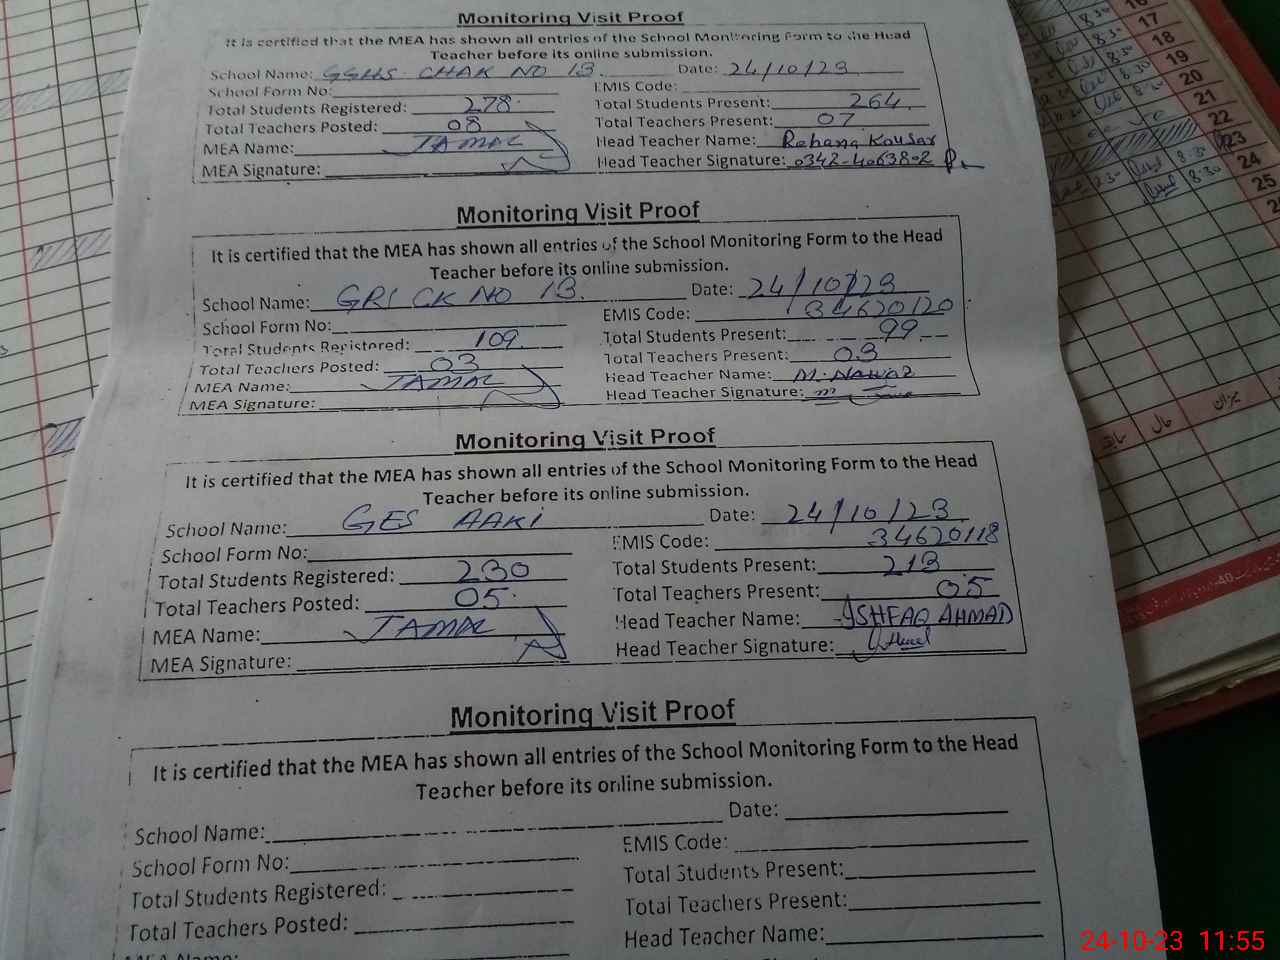 Monitoring Visit Proof
It is certified that the MEA has shown all entries of the School Monitoring Form to the Head
Teacher before its online submission.
School Name: GGHS CHAK NO 13. Date: 24/10/23
School Form No: EMIS Code:
Total Students Registered: 278 Total Students Present: 264
Total Teachers Posted: 08 Total Teachers Present: 07
MEA Name: JAMAL Head Teacher Name: Rehana Kousar
MEA Signature: Head Teacher Signature: 0342-4063802
Monitoring Visit Proof
It is certified that the MEA has shown all entries of the School Monitoring Form to the Head
Teacher before its online submission.
School Name: CK NO 13. Date: 24/10/23
School Form No: EMIS Code: 34620120
Total Students Registered: 109 Total Students Present: 99
Total Teachers Posted: 03 Total Teachers Present: 03
MEA Name: JAMAL Head Teacher Name: M. Nawaz
MEA Signature: Head Teacher Signature:
Monitoring Visit Proof
It is certified that the MEA has shown all entries of the School Monitoring Form to the Head
Teacher before its online submission.
School Name: GES AAKI Date: 24/10/23
School Form No: EMIS Code: 34620118
Total Students Registered: 230 Total Students Present: 213
Total Teachers Posted: 05 Total Teachers Present: 05
MEA Name: JAMAL Head Teacher Name: ISHFAQ AHMAD
MEA Signature: Head Teacher Signature:
Monitoring Visit Proof
It is certified that the MEA has shown all entries of the School Monitoring Form to the Head
Teacher before its online submission.
School Name: Date:
School Form No: EMIS Code:
Total Students Registered: Total Students Present:
Total Teachers Posted: Total Teachers Present:
MEA Name: Head Teacher Name:
17
18
19
20
21
22
23
24
25
میزان
حال
سابقہ
24-10-23 11:55